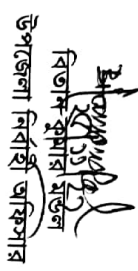 বিতান কুমার মন্ডল
উপজেলা নির্বাহী অফিসার